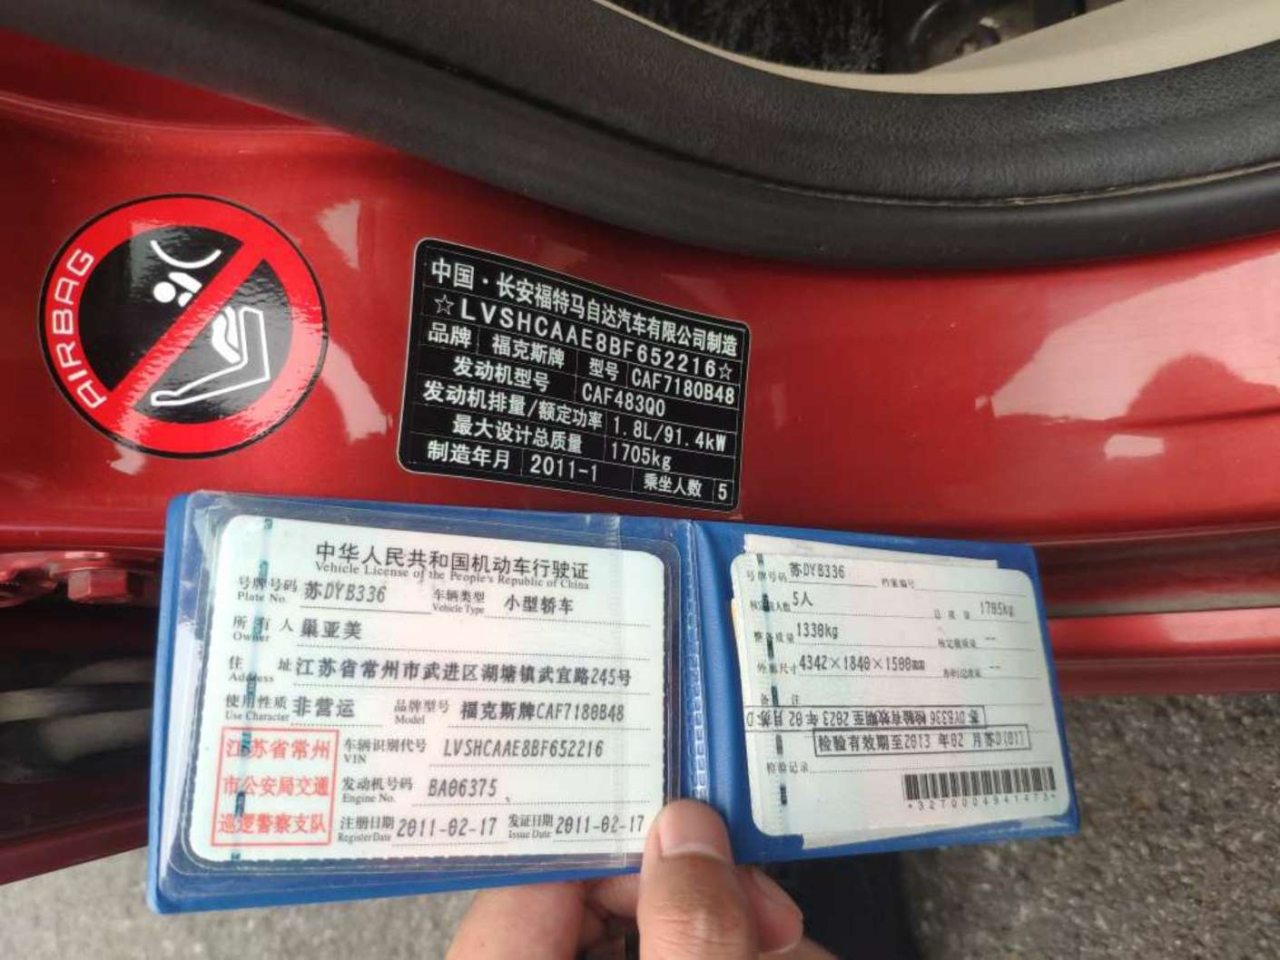 AIRBAG
中国·长安福特马自达汽车有限公司制造
☆LVSHCAAE8BF652216☆
品牌 福克斯牌 型号 CAF7180B48
发动机型号 CAF483Q0
发动机排量/额定功率 1.8L/91.4kW
最大设计总质量 1705kg
制造年月 2011-1 乘坐人数 5
中华人民共和国机动车行驶证
Vehicle License of the People's Republic of China
号牌号码 苏DYB336 车辆类型 小型轿车
Plate No. Vehicle Type
所有人 巢亚美
Owner
住址 江苏省常州市武进区湖塘镇武宜路245号
Address
使用性质 非营运 品牌型号 福克斯牌CAF7180B48
Use Character Model
江苏省常州
市公安局交通
巡逻警察支队
车辆识别代号 LVSHCAAE8BF652216
VIN
发动机号码 BA06375
Engine No.
注册日期 2011-02-17 发证日期 2011-02-17
Register Date Issue Date
号牌号码 苏DYB336 档案编号
核定载人数 5人 总质量 1705kg
整备质量 1330kg 核定载质量 --
外廓尺寸 4342×1840×1500mm --
备注
苏DYB336 检验有效期至2023年02月苏D
检验有效期至2013年02月苏D(01)
检验记录
*3270004941473*